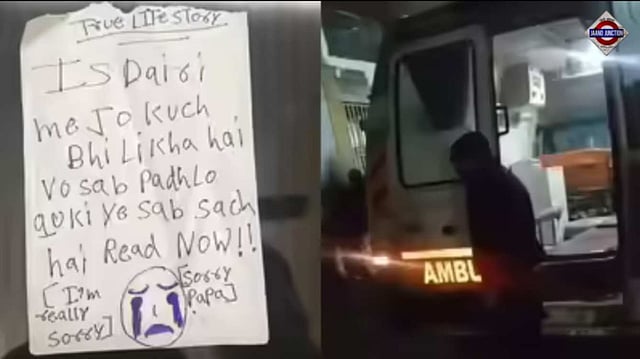 TRUE LIFE STORY
Is Dairi
me Jo kuch
Bhi Likha hai
vo sab Padhlo
quki ye sab sach
hai Read NOW!!
[I'm really sorry]
[Sorry Papa]
AMBL
JAANO JUNCTION